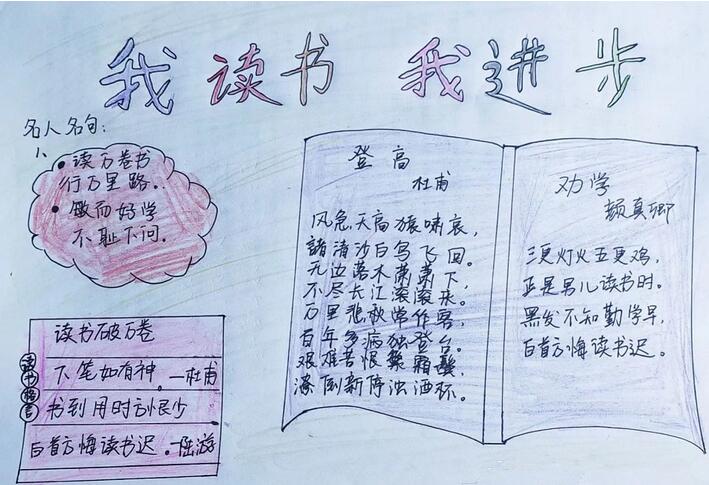 我读书 我进步
名人名句:
1、
• 读万卷书
行万里路.
• 敏而好学
不耻下问.
读书破万卷
下笔如有神。—杜甫
书到用时方恨少
白首方悔读书迟。—陆游
读书格言
登高
杜甫
风急天高猿啸哀,
渚清沙白鸟飞回。
无边落木萧萧下,
不尽长江滚滚来。
万里悲秋常作客,
百年多病独登台。
艰难苦恨繁霜鬓,
潦倒新停浊酒杯。
劝学
颜真卿
三更灯火五更鸡,
正是男儿读书时。
黑发不知勤学早,
白首方悔读书迟。